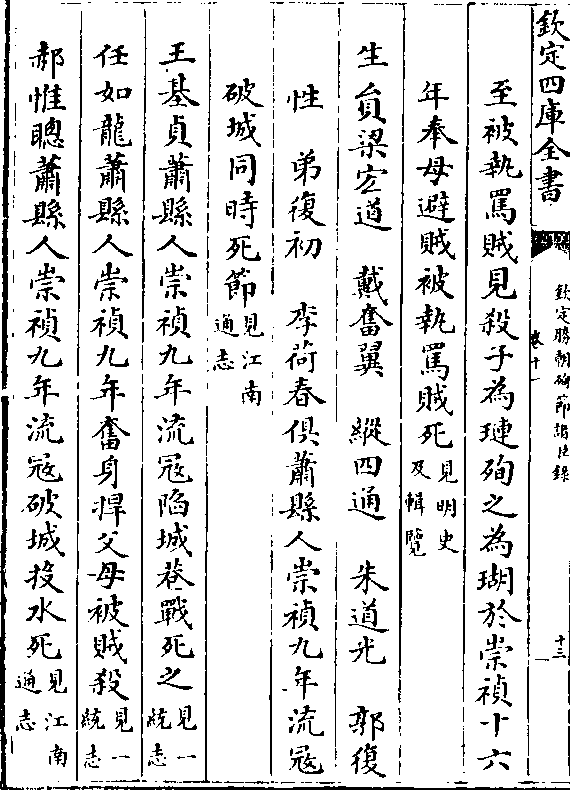 欽定四庫全書
欽定勝朝殉節諸臣錄
卷十一
十三
至被執罵賊見殺子為璉殉之為瑚於崇禎十六
年奉母避賊被執罵賊死見明史及輯覽
生員梁宏道　戴奮翼　縱四通　朱道光　郭復
性　弟復初　李荷春俱蕭縣人崇禎九年流寇
破城同時死節見江南通志
王基貞蕭縣人崇禎九年流寇陷城巷戰死之見一統志
任如龍蕭縣人崇禎九年奮身捍父母被賊殺見一統志
郝惟聰蕭縣人崇禎九年流寇破城投水死見江南通志